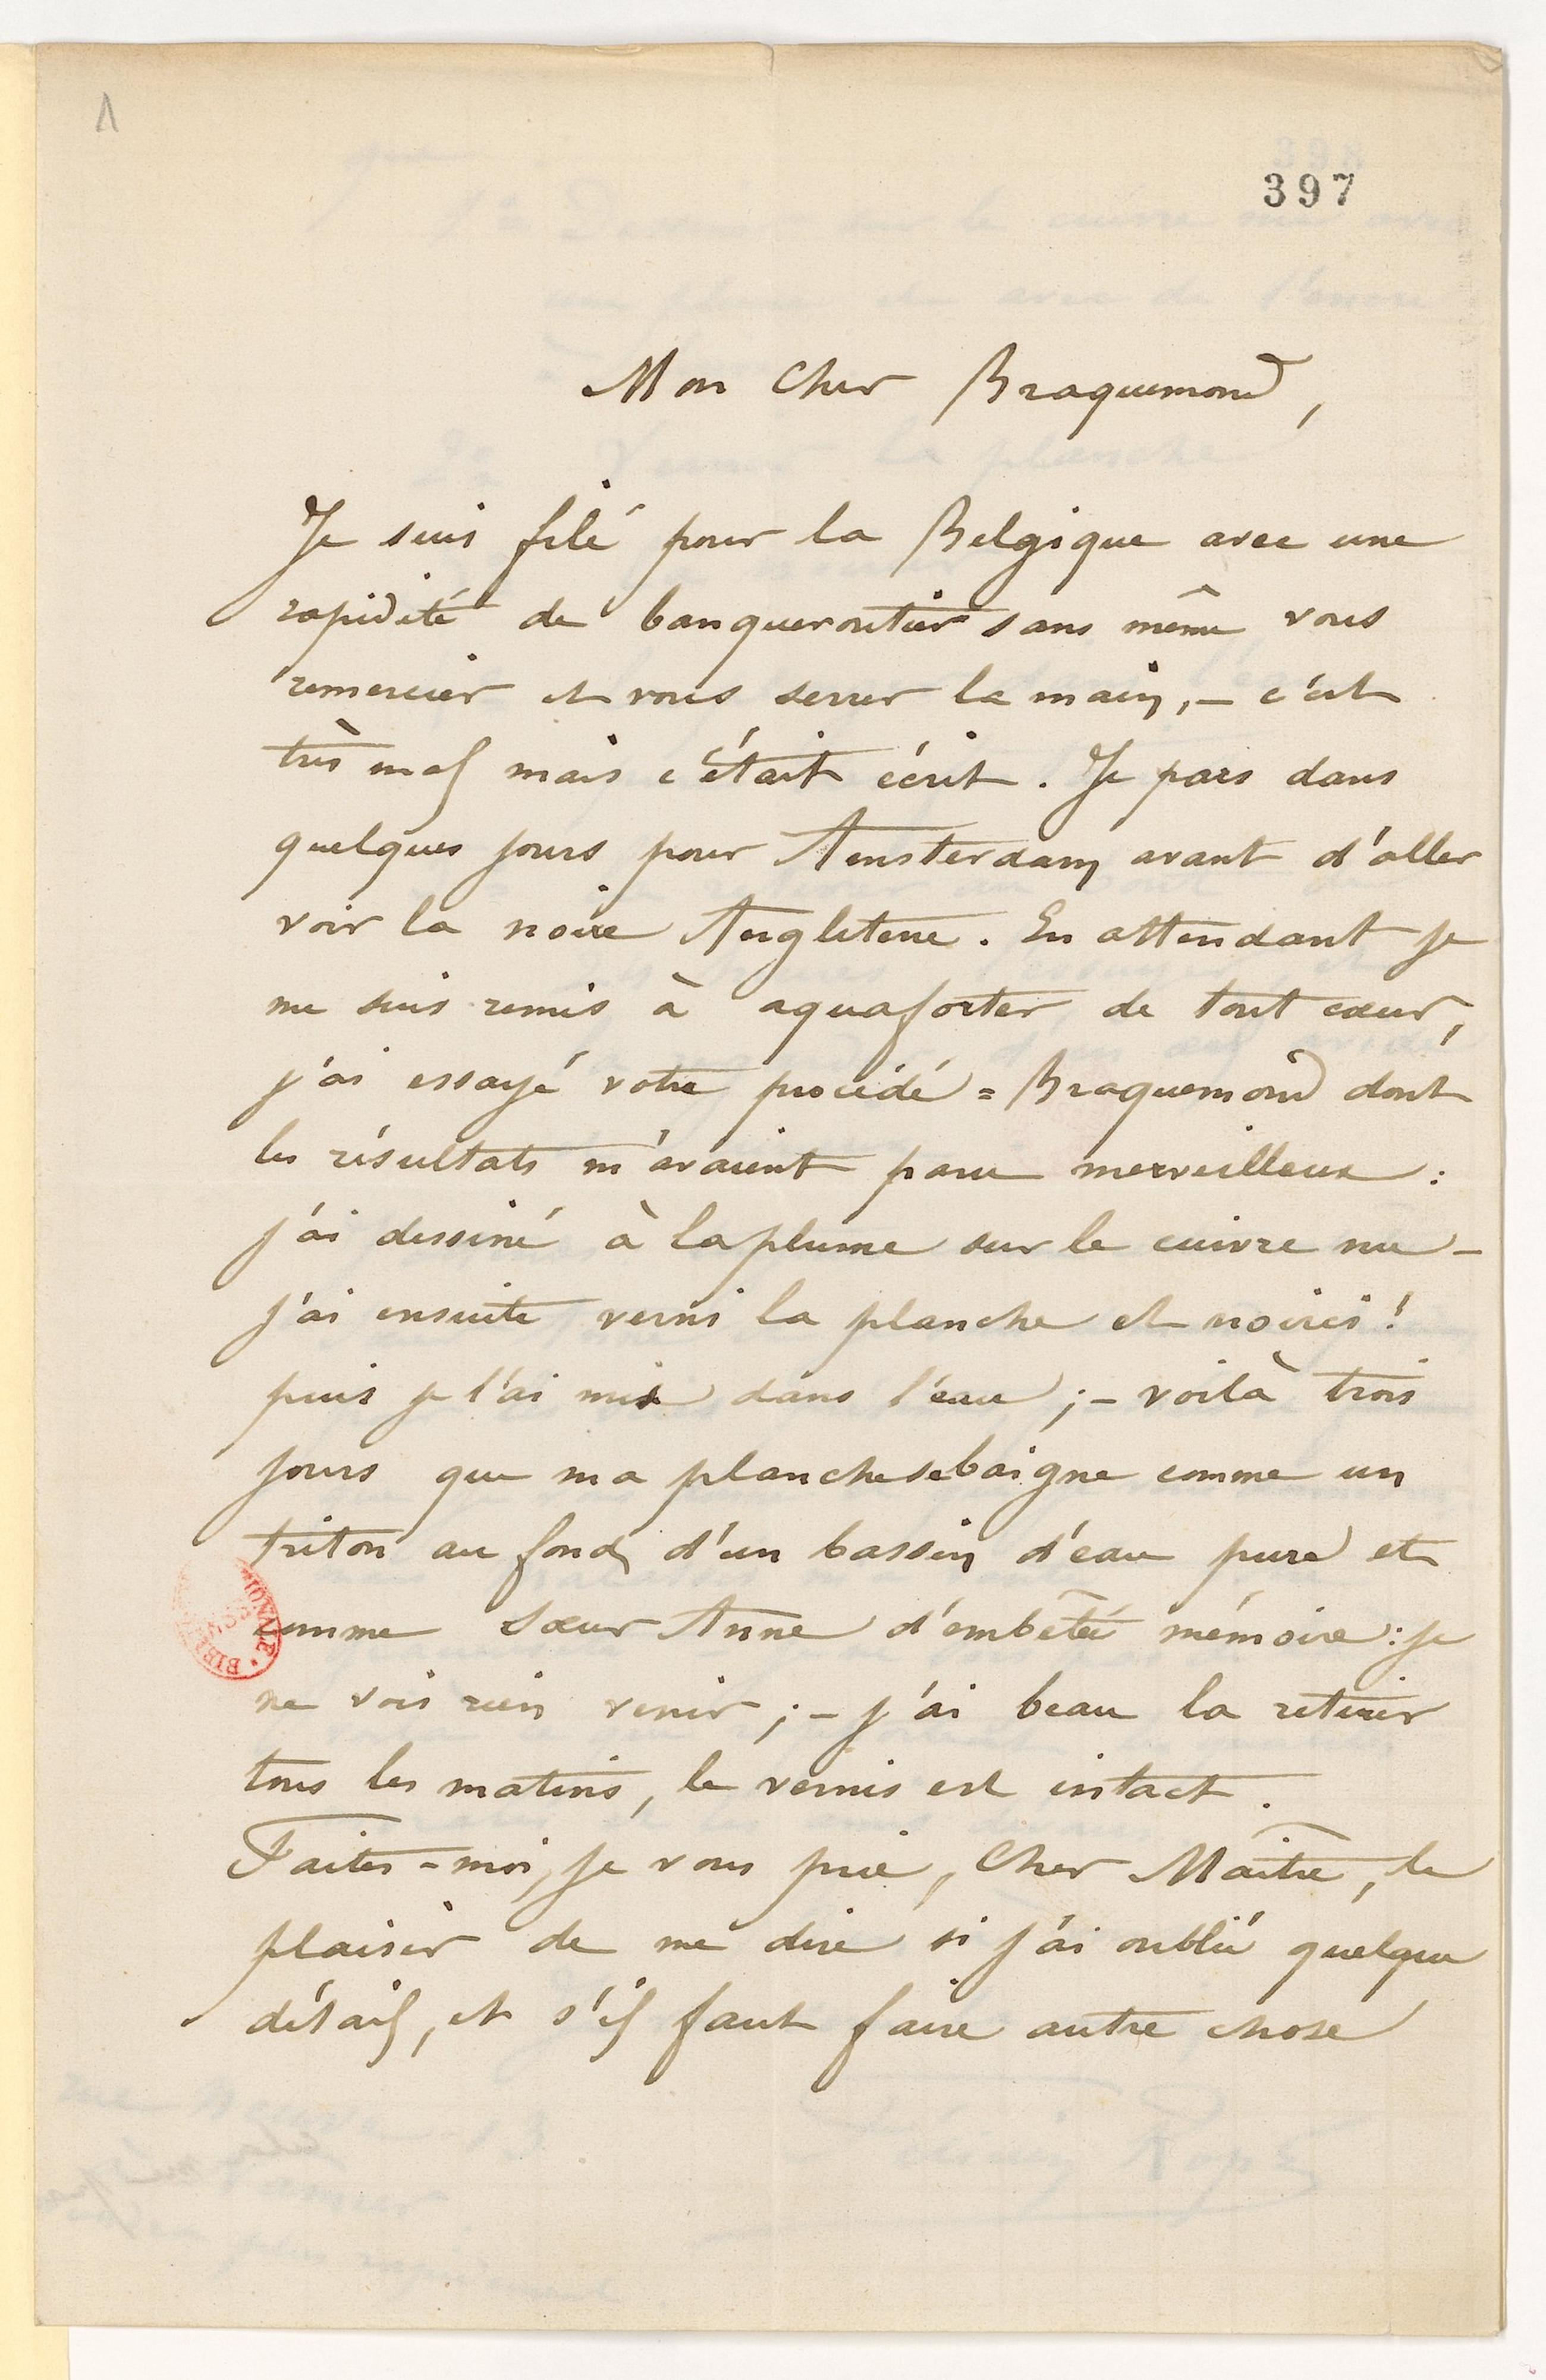 1
397
Mon cher Braquemond,
Je suis filé pour la Belgique avec une
rapidité de banqueroutier sans même vous
remercier et vous serrer la main, – c'est
très mal mais c'était écrit. Je pars dans
quelques jours pour Amsterdam avant d'aller
voir la noire Angleterre. En attendant je
me suis remis à aquaforter de tout cœur,
j'ai essayé votre procédé = Braquemond dont
les résultats m'avaient paru merveilleux :
j'ai dessiné à la plume sur le cuivre nu –
j'ai ensuite verni la planche et noirci !
puis je l'ai mis dans l'eau ; – voilà trois
jours que ma planche se baigne comme un
triton au fond d'un bassin d'eau pure et
comme Sœur Anne d'embêtée mémoire : je
ne vois rien venir ; – j'ai beau la retirer
tous les matins, le vernis est intact.
Faites-moi, je vous prie, Cher Maître, le
plaisir de me dire si j'ai oublié quelque
détail, et s'il faut faire autre chose